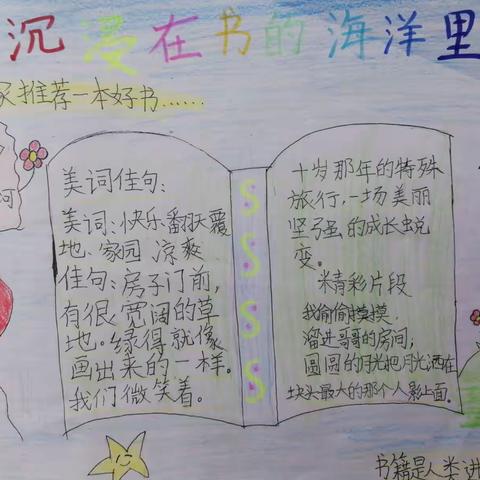 沉浸在书的海洋里
家推荐一本好书……
河
美词佳句：
美词：快乐 翻天覆
地、家园 凉爽
佳句：房子门前，
有很宽阔的草
地。绿得就像
画出来的一样。
我们微笑着。
S
S
S
S
S
十岁那年的特殊
旅行，一场美丽
坚强的成长蜕
变。
精彩片段
我偷偷摸摸
溜进哥哥的房间，
圆圆的月光把月光洒在
块头最大的那个人影上面。
书籍是人类进